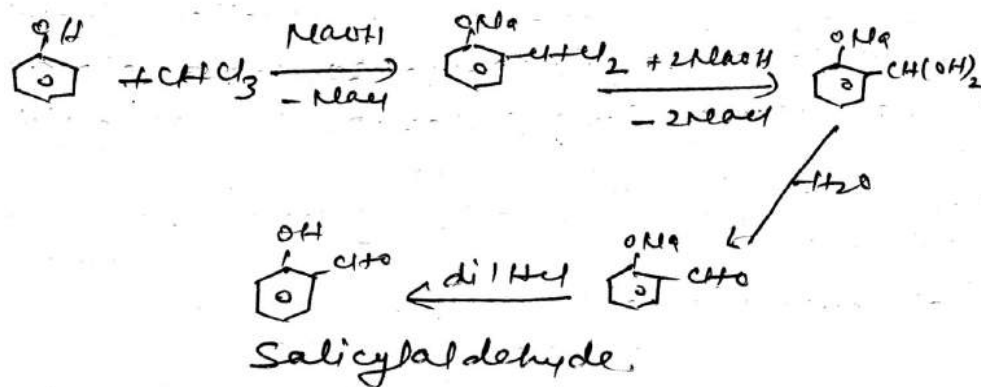 OH + CHCl3 NaOH - NaCl ONa CHCl2 + 2NaOH - 2NaCl ONa CH(OH)2
-H2O
OH CHO dil HCl ONa CHO
Salicylaldehyde